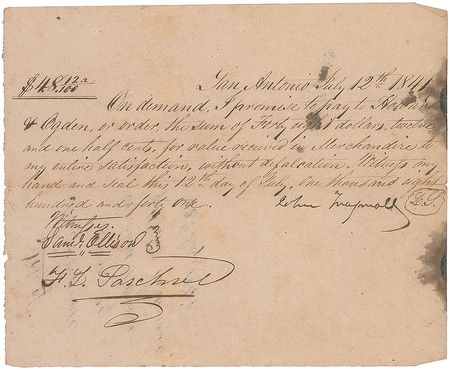 $48 12½/100 San Antonio July 12th 1841
On demand, I promise to pay to Howard
& Ogden, or order, the sum of Forty eight dollars, twelve
and one half cents, for value received in Merchandize to
my entire satisfaction, without defalcation. Witness my
hand and seal this 12th day of July, one thousand eight
hundred and forty one. John
Witnesses.
Saml. Ellison
F. L. Paschal